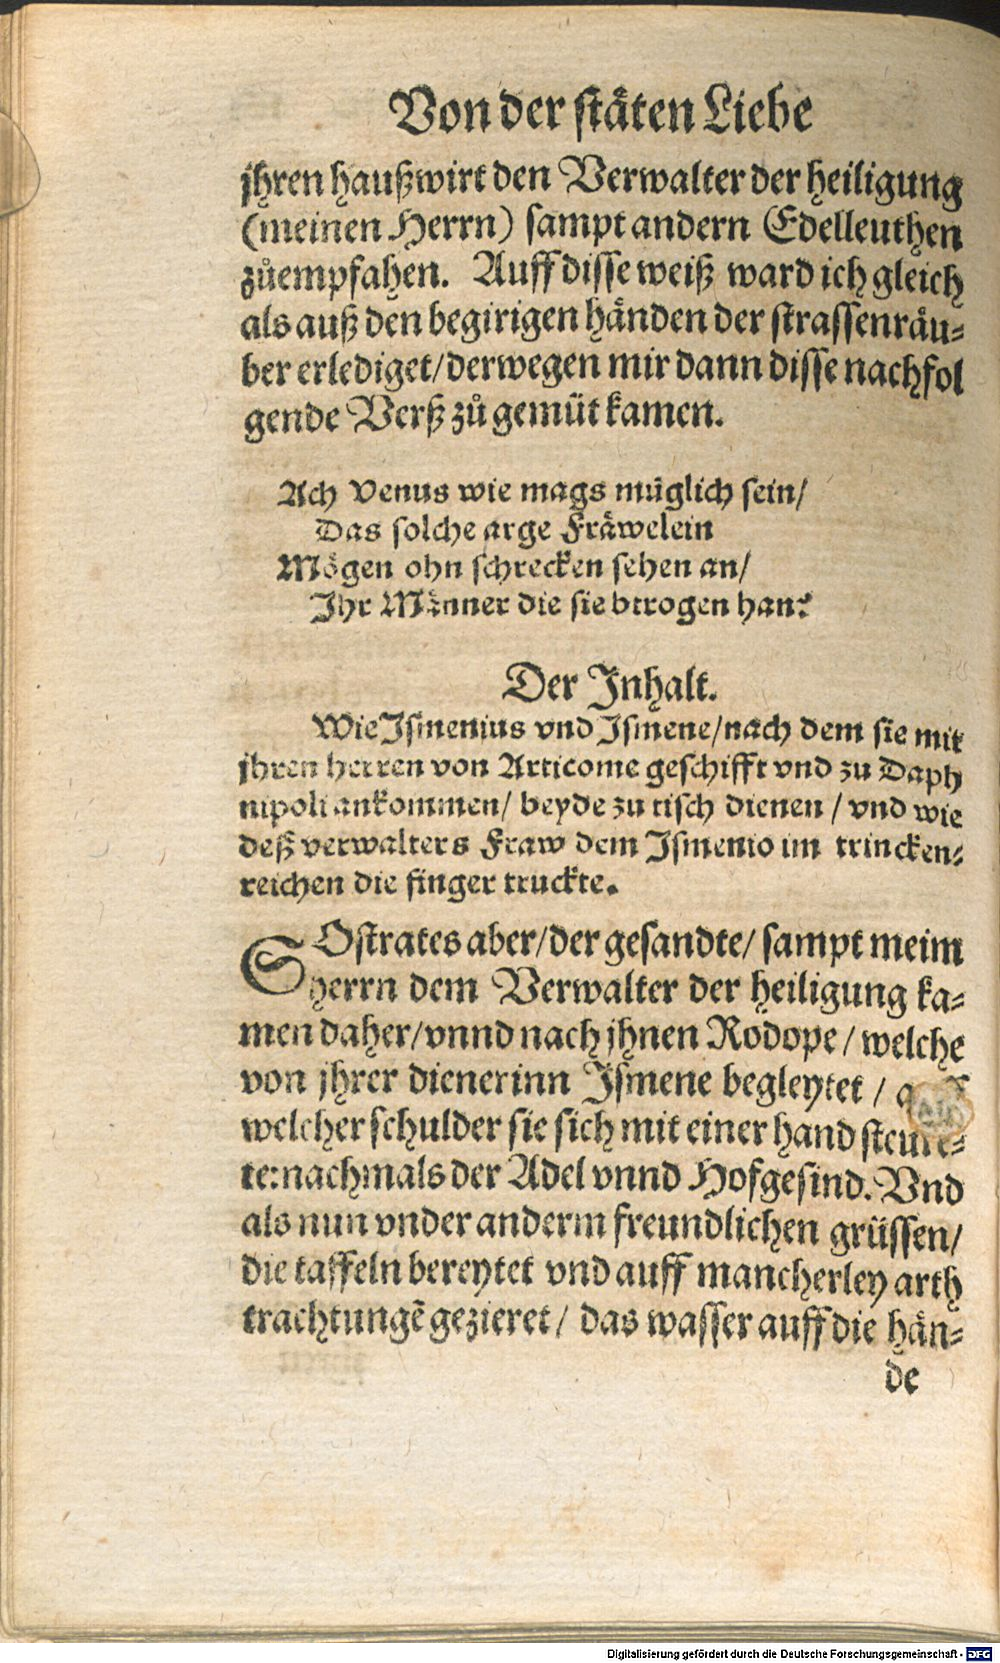 Von der stäten Liebe
jhren haußwirt den Verwalter der heiligung
(meinen Herrn) sampt andern Edelleuthen
zůempfahen. Auff disse weiß ward ich gleich
als auß den begirigen händen der strassenräu-
ber erlediget/ derwegen mir dann disse nachfol
gende Verß zů gemüt kamen.
Ach Venus wie mags müglich sein/
Das solche arge Fräwelein
Mögen ohn schrecken sehen an/
Ihr Männer die sie btrogen han?
Der Inhalt.
Wie Ismenius vnd Ismene/ nach dem sie mit
jhren herren von Articome geschifft vnd zu Daph
nipoli ankommen/ beyde zu tisch dienen / vnd wie
deß verwalters Fraw dem Ismenio im trincken-
reichen die finger truckte.
SOstrates aber/ der gesandte/ sampt meim
herrn dem Verwalter der heiligung ka-
men daher/ vnnd nach jhnen Rodope / welche
von jhrer dienerinn Ismene begleytet /
welcher schulder sie sich mit einer hand steure-
te: nachmals der Adel vnnd Hofgesind. Vnd
als nun vnder anderm freundlichen grüssen/
die taffeln bereytet vnd auff mancherley arth
trachtungẽ gezieret / das wasser auff die hän-
de
Digitalisierung gefördert durch die Deutsche Forschungsgemeinschaft - DFG